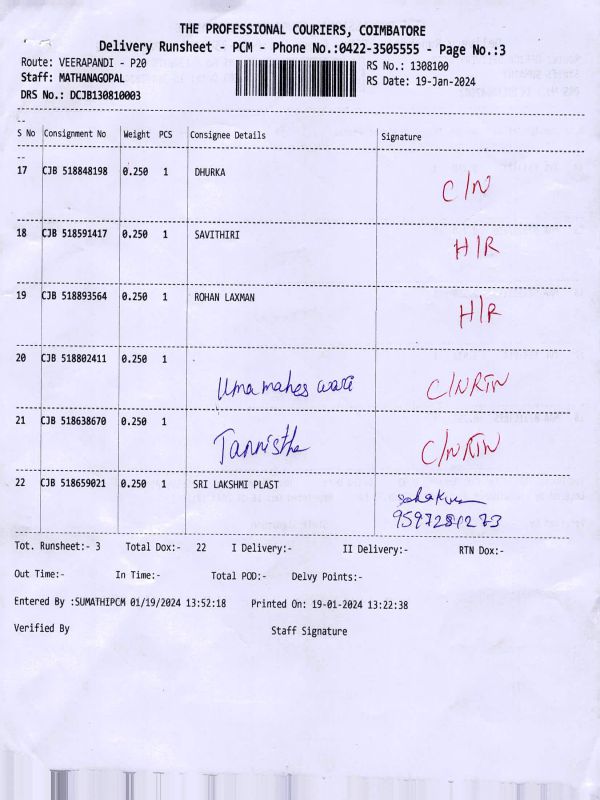 THE PROFESSIONAL COURIERS, COIMBATORE
Delivery Runsheet - PCM - Phone No.:0422-3505555 - Page No.:3
Route: VEERAPANDI - P20 RS No.: 1308100
Staff: MATHANAGOPAL RS Date: 19-Jan-2024
DRS No.: DCJB130810003
S No Consignment No Weight PCS Consignee Details Signature
17 CJB 518848198 0.250 1 DHURKA C/N
18 CJB 518591417 0.250 1 SAVITHIRI H/R
19 CJB 518893564 0.250 1 ROHAN LAXMAN H/R
20 CJB 518802411 0.250 1 Umamaheswari C/N RTN
21 CJB 518638670 0.250 1 Tannistha C/N RTN
22 CJB 518659021 0.250 1 SRI LAKSHMI PLAST
Tot. Runsheet:- 3 Total Dox:- 22 I Delivery:- II Delivery:- RTN Dox:-
Out Time:- In Time:- Total POD:- Delvy Points:-
Entered By :SUMATHIPCM 01/19/2024 13:52:18 Printed On: 19-01-2024 13:22:38
Verified By Staff Signature